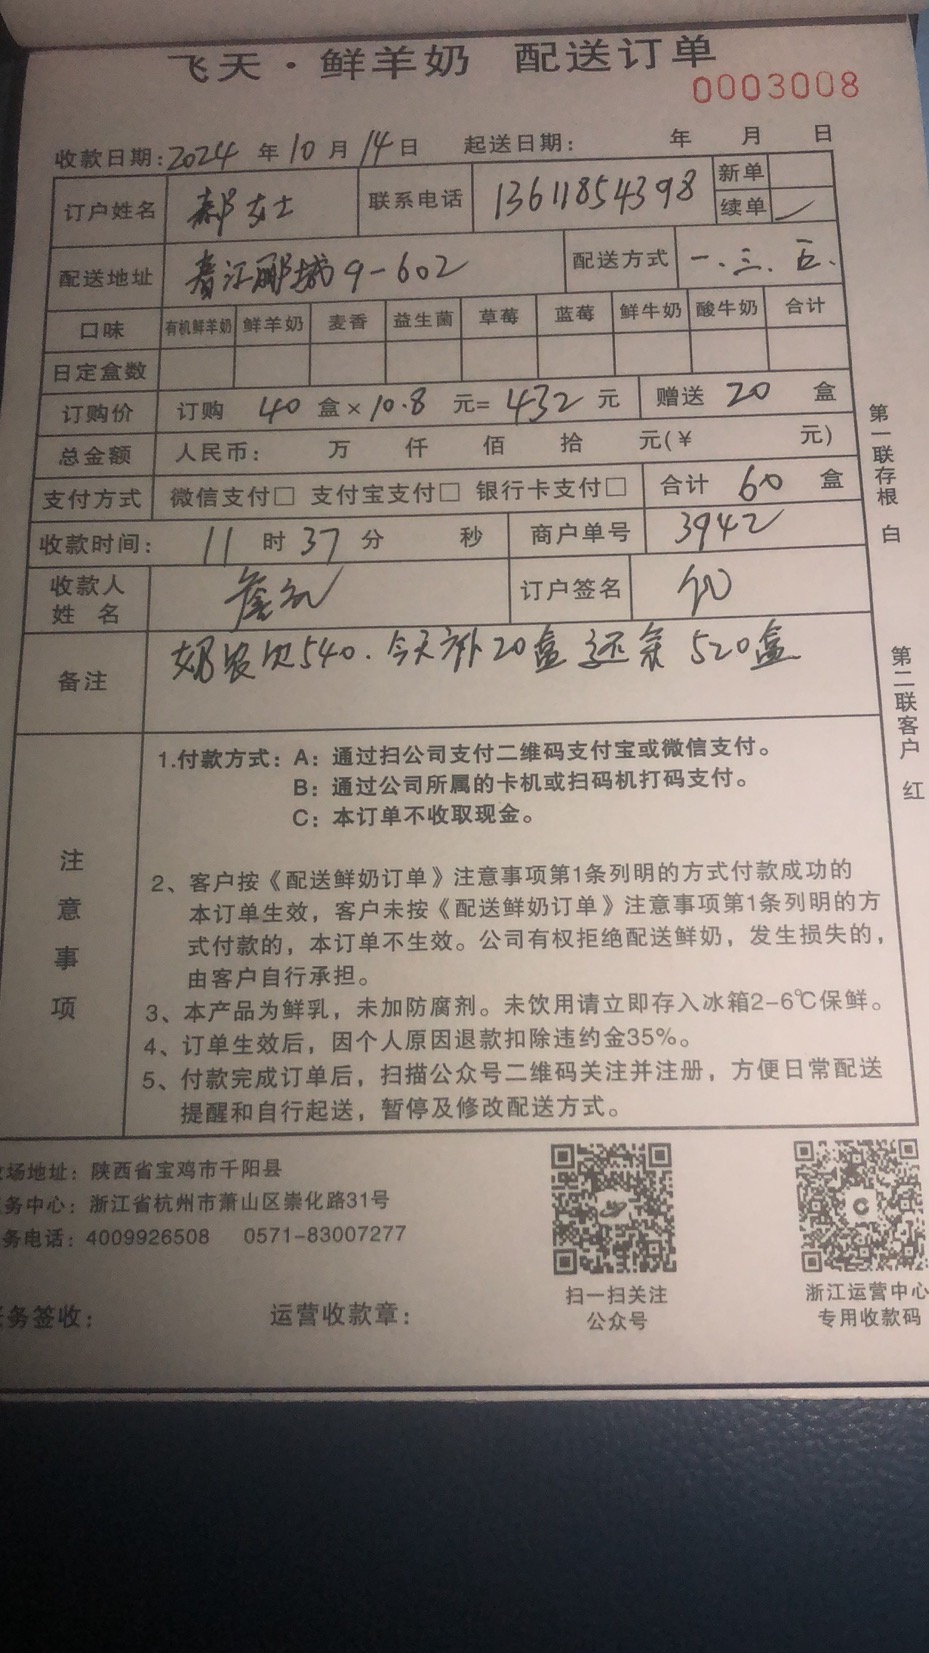 飞天·鲜羊奶 配送订单
0003008
收款日期:2024年10月14日 起送日期: 年 月 日
订户姓名 郝女士 联系电话 13611854398 新单
续单 ✓
配送地址 春江郦城9-602 配送方式 一.三.五.
口味 有机鲜羊奶 鲜羊奶 麦香 益生菌 草莓 蓝莓 鲜牛奶 酸牛奶 合计
日定盒数
订购价 订购 40 盒×10.8 元=432元 赠送 20 盒
总金额 人民币: 万 仟 佰 拾 元(¥ 元)
支付方式 微信支付□ 支付宝支付□ 银行卡支付□ 合计 60 盒
收款时间: 11时37分 秒 商户单号 3942
收款人
姓 名
订户签名
备注 欠540.今天补20盒 还余 520盒
第一联存根 白
第二联客户 红
注意事项
1.付款方式:A:通过扫公司支付二维码支付宝或微信支付。
B:通过公司所属的卡机或扫码机打码支付。
C:本订单不收取现金。
2、客户按《配送鲜奶订单》注意事项第1条列明的方式付款成功的
本订单生效,客户未按《配送鲜奶订单》注意事项第1条列明的方
式付款的,本订单不生效。公司有权拒绝配送鲜奶,发生损失的,
由客户自行承担。
3、本产品为鲜乳,未加防腐剂。未饮用请立即存入冰箱2-6℃保鲜。
4、订单生效后,因个人原因退款扣除违约金35%。
5、付款完成订单后,扫描公众号二维码关注并注册,方便日常配送
提醒和自行起送,暂停及修改配送方式。
场地址:陕西省宝鸡市千阳县
务中心:浙江省杭州市萧山区崇化路31号
务电话:4009926508 0571-83007277
扫一扫关注
公众号
浙江运营中心
专用收款码
务签收: 运营收款章: